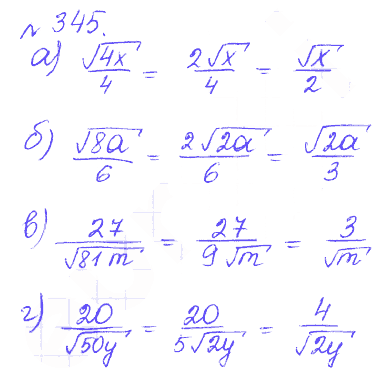 № 345.
а) √4x/4 = 2√x/4 = √x/2
б) √8a/6 = 2√2a/6 = √2a/3
в) 27/√81m = 27/9√m = 3/√m
г) 20/√50y = 20/5√2y = 4/√2y